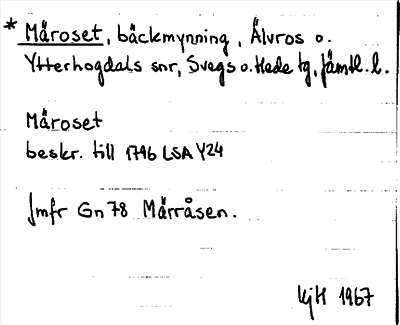 * Måroset, bäckmynning, Älvros o.
Ytterhogdals snr, Svegs o. Hede tg, Jämtl. l.
Måroset
beskr. till 1796 LSA Y24
Jmfr Gn 78 Mårråsen.
KjH 1967